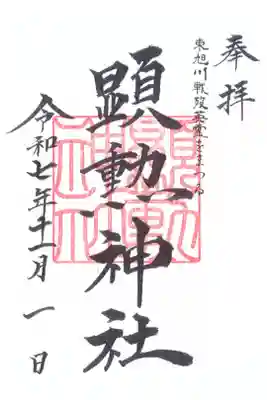 奉拝
東旭川戦歿英霊をまつる
顕勲神社
令和七年十一月一日